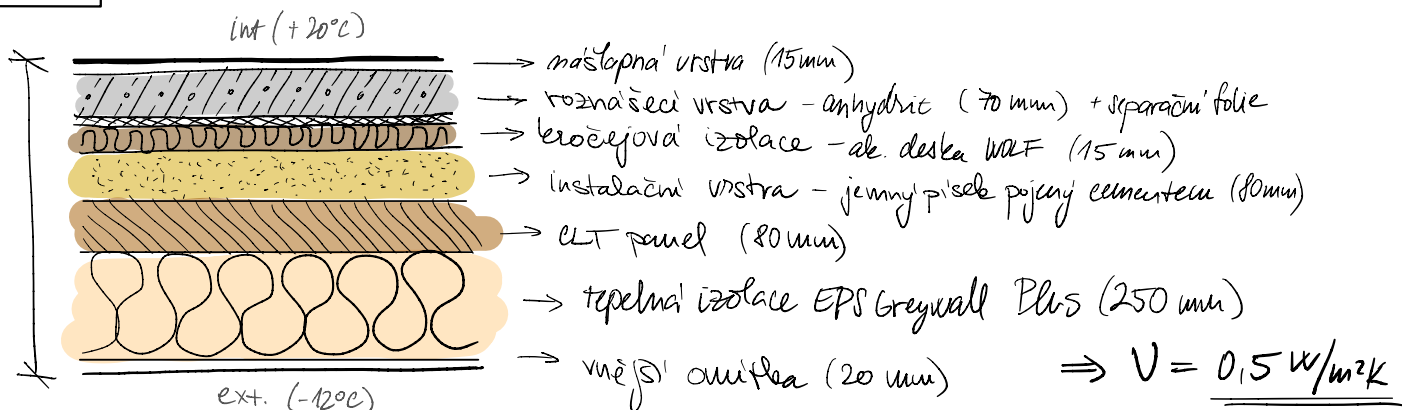 int (+20°C)
nášlapná vrstva (15mm)
roznášecí vrstva - anhydrit (70 mm) + separační folie
kročejová izolace - ak. deska WOLF (15 mm)
instalační vrstva - jemný písek pojený cementem (80mm)
CLT panel (80 mm)
tepelná izolace EPS Greywall Plus (250 mm)
vnější omítka (20 mm)
⇒ U = 0,5 W/m²K
ext. (-12°C)